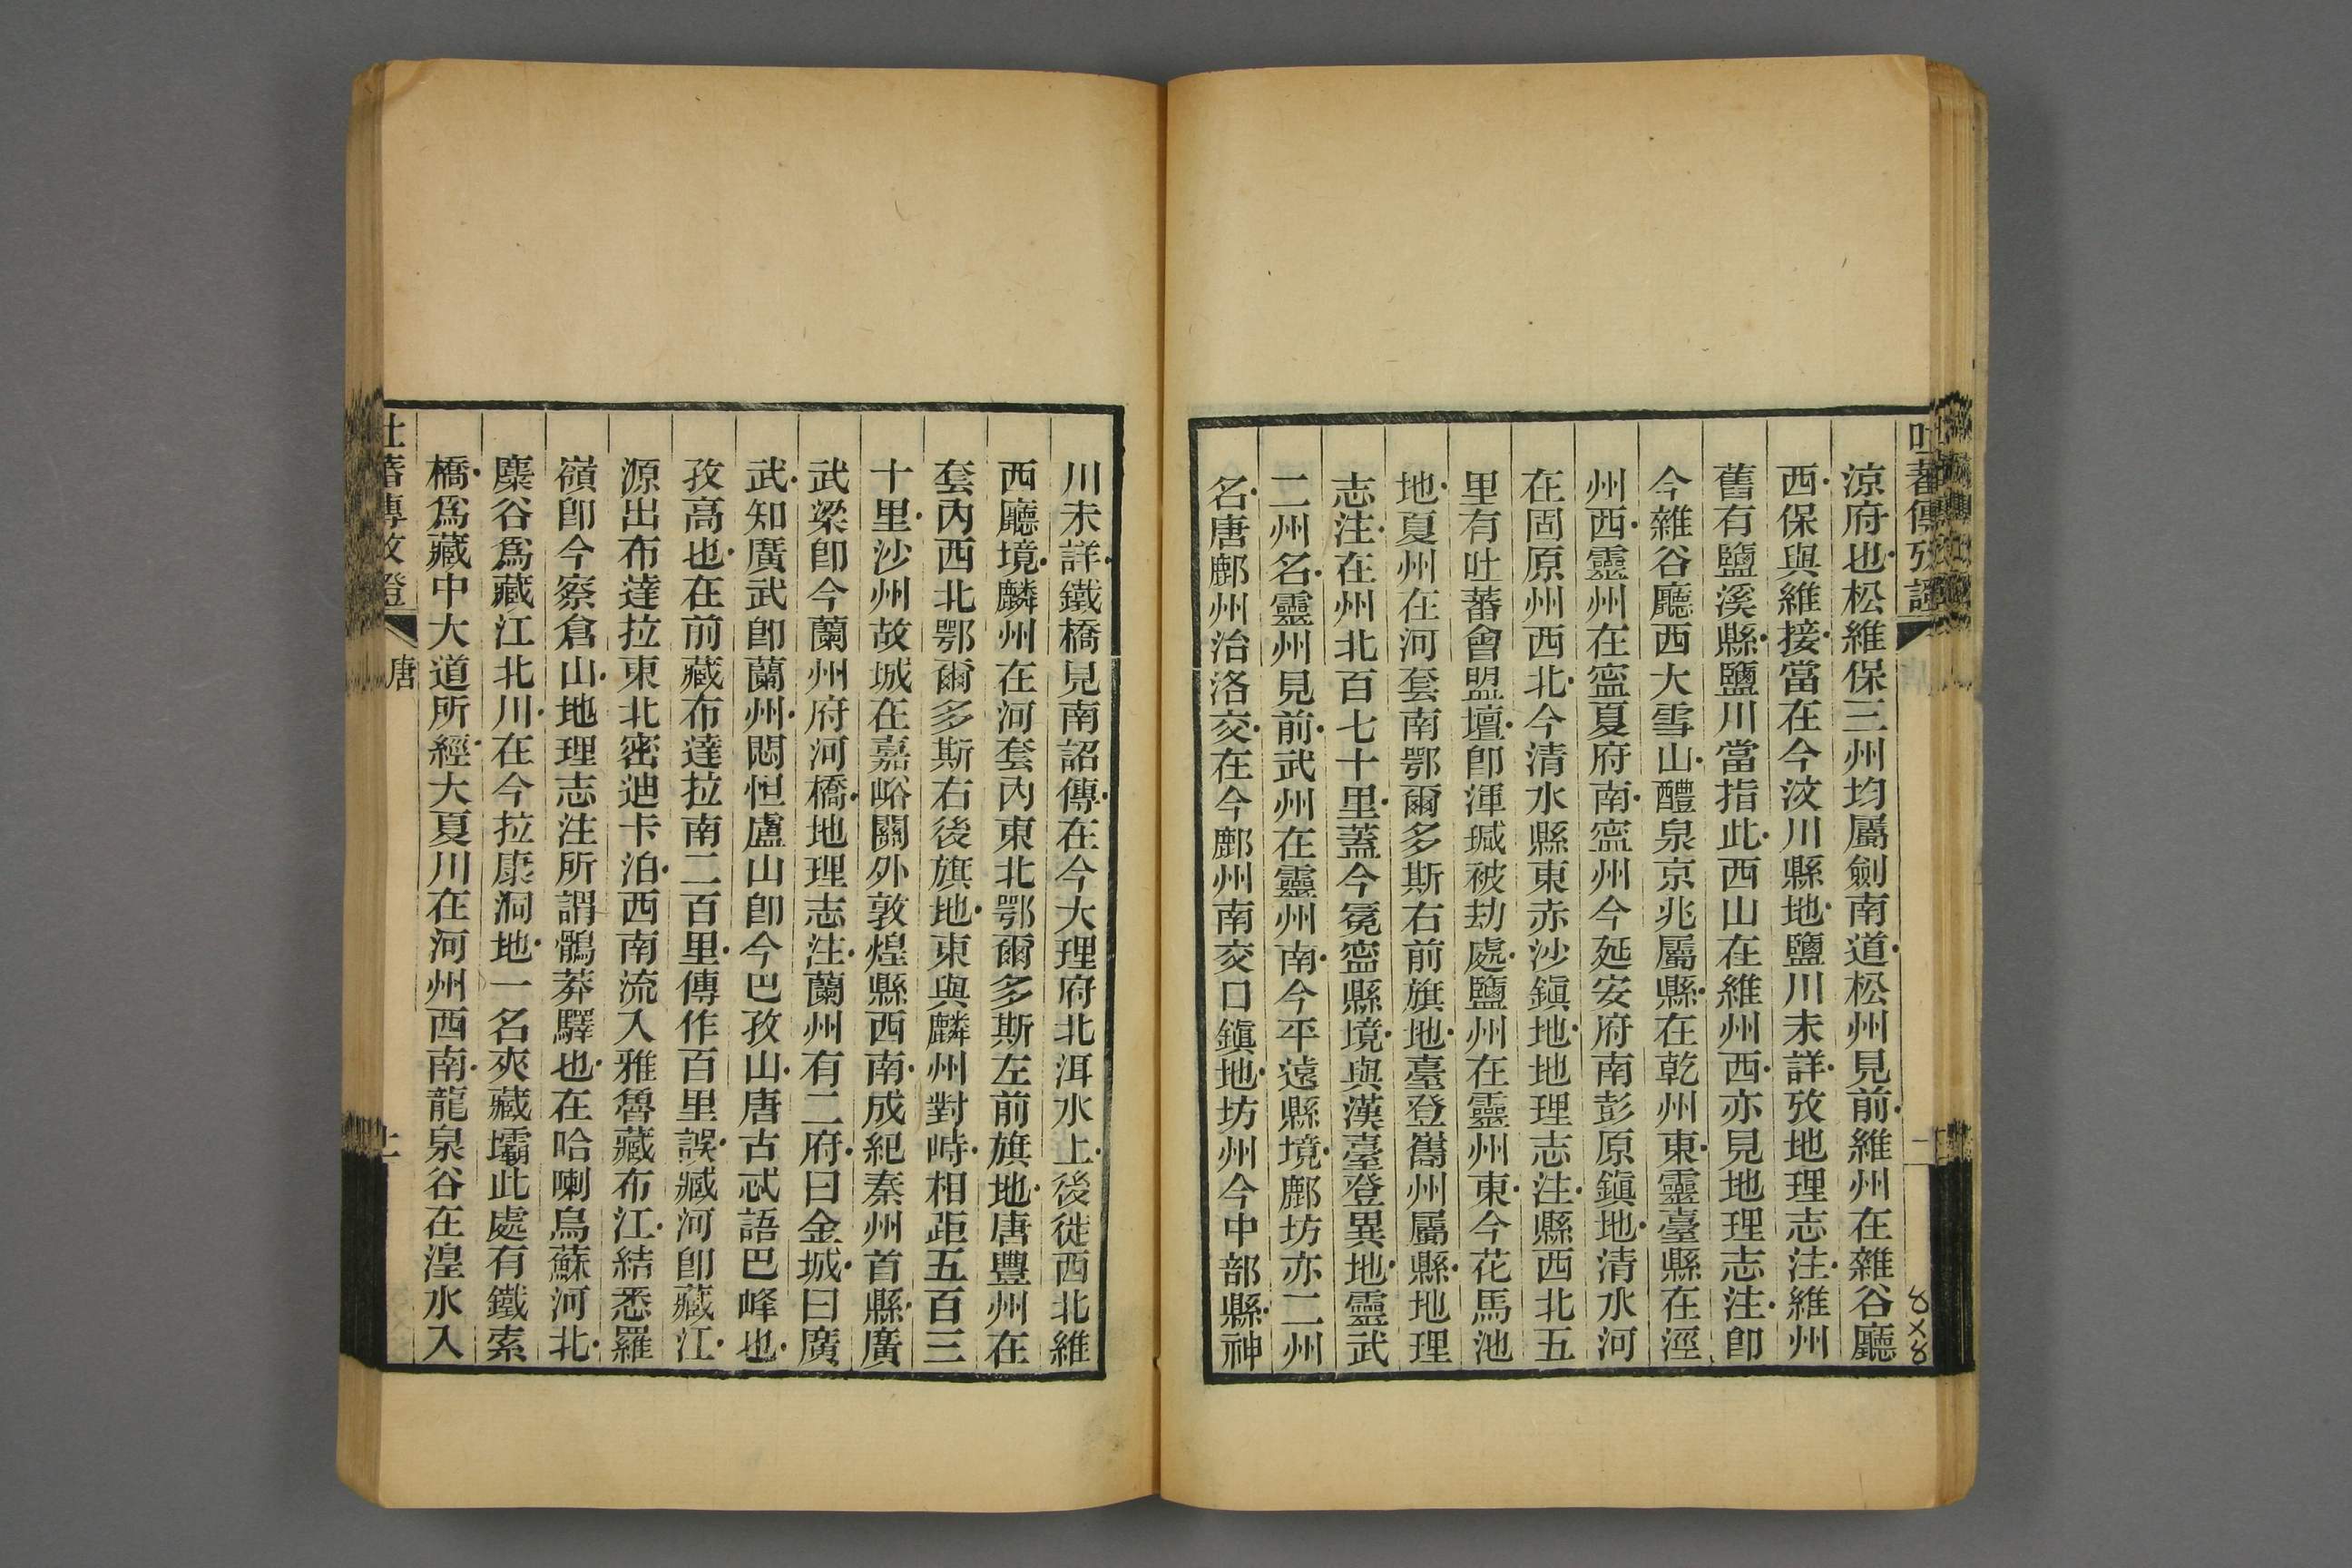 吐蕃傳攷證
涼府也松維保三州均屬劍南道松州見前維州在雜谷廳
西保與維接當在今汶川縣地鹽川未詳攷地理志注維州
舊有鹽溪縣鹽川當指此西山在維州西亦見地理志注卽
今雜谷廳西大雪山醴泉京兆屬縣在乾州東靈臺縣在涇
州西靈州在寍夏府南寍州今延安府南彭原鎭地清水河
在固原州西北今清水縣東赤沙鎭地地理志注縣西北五
里有吐蕃會盟壇卽渾瑊被劫處鹽州在靈州東今花馬池
地夏州在河套南鄂爾多斯右前旗地臺登巂州屬縣地理
志注在州北百七十里蓋今冕寍縣境與漢臺登異地靈武
二州名靈州見前武州在靈州南今平遠縣境鄜坊亦二州
名唐鄜州治洛交在今鄜州南交口鎭地坊州今中部縣神
8×8
川未詳鐵橋見南詔傳在今大理府北洱水上後徙西北維
西廳境麟州在河套內東北鄂爾多斯左前旗地唐豐州在
套內西北鄂爾多斯右後旗地東與麟州對峙相距五百三
十里沙州故城在嘉峪關外敦煌縣西南成紀秦州首縣廣
武梁卽今蘭州府河橋地理志注蘭州有二府曰金城曰廣
武知廣武卽蘭州悶怛盧山卽今巴孜山唐古忒語巴峰也
孜高也在前藏布達拉南二百里傳作百里誤臧河卽藏江
源出布達拉東北密迪卡泊西南流入雅魯藏布江結悉羅
嶺卽今察倉山地理志注所謂鶻莽驛也在哈喇烏蘇河北
麋谷爲藏江北川在今拉康洞地一名夾藏壩此處有鐵索
橋爲藏中大道所經大夏川在河州西南龍泉谷在湟水入
吐蕃傳攷證
唐